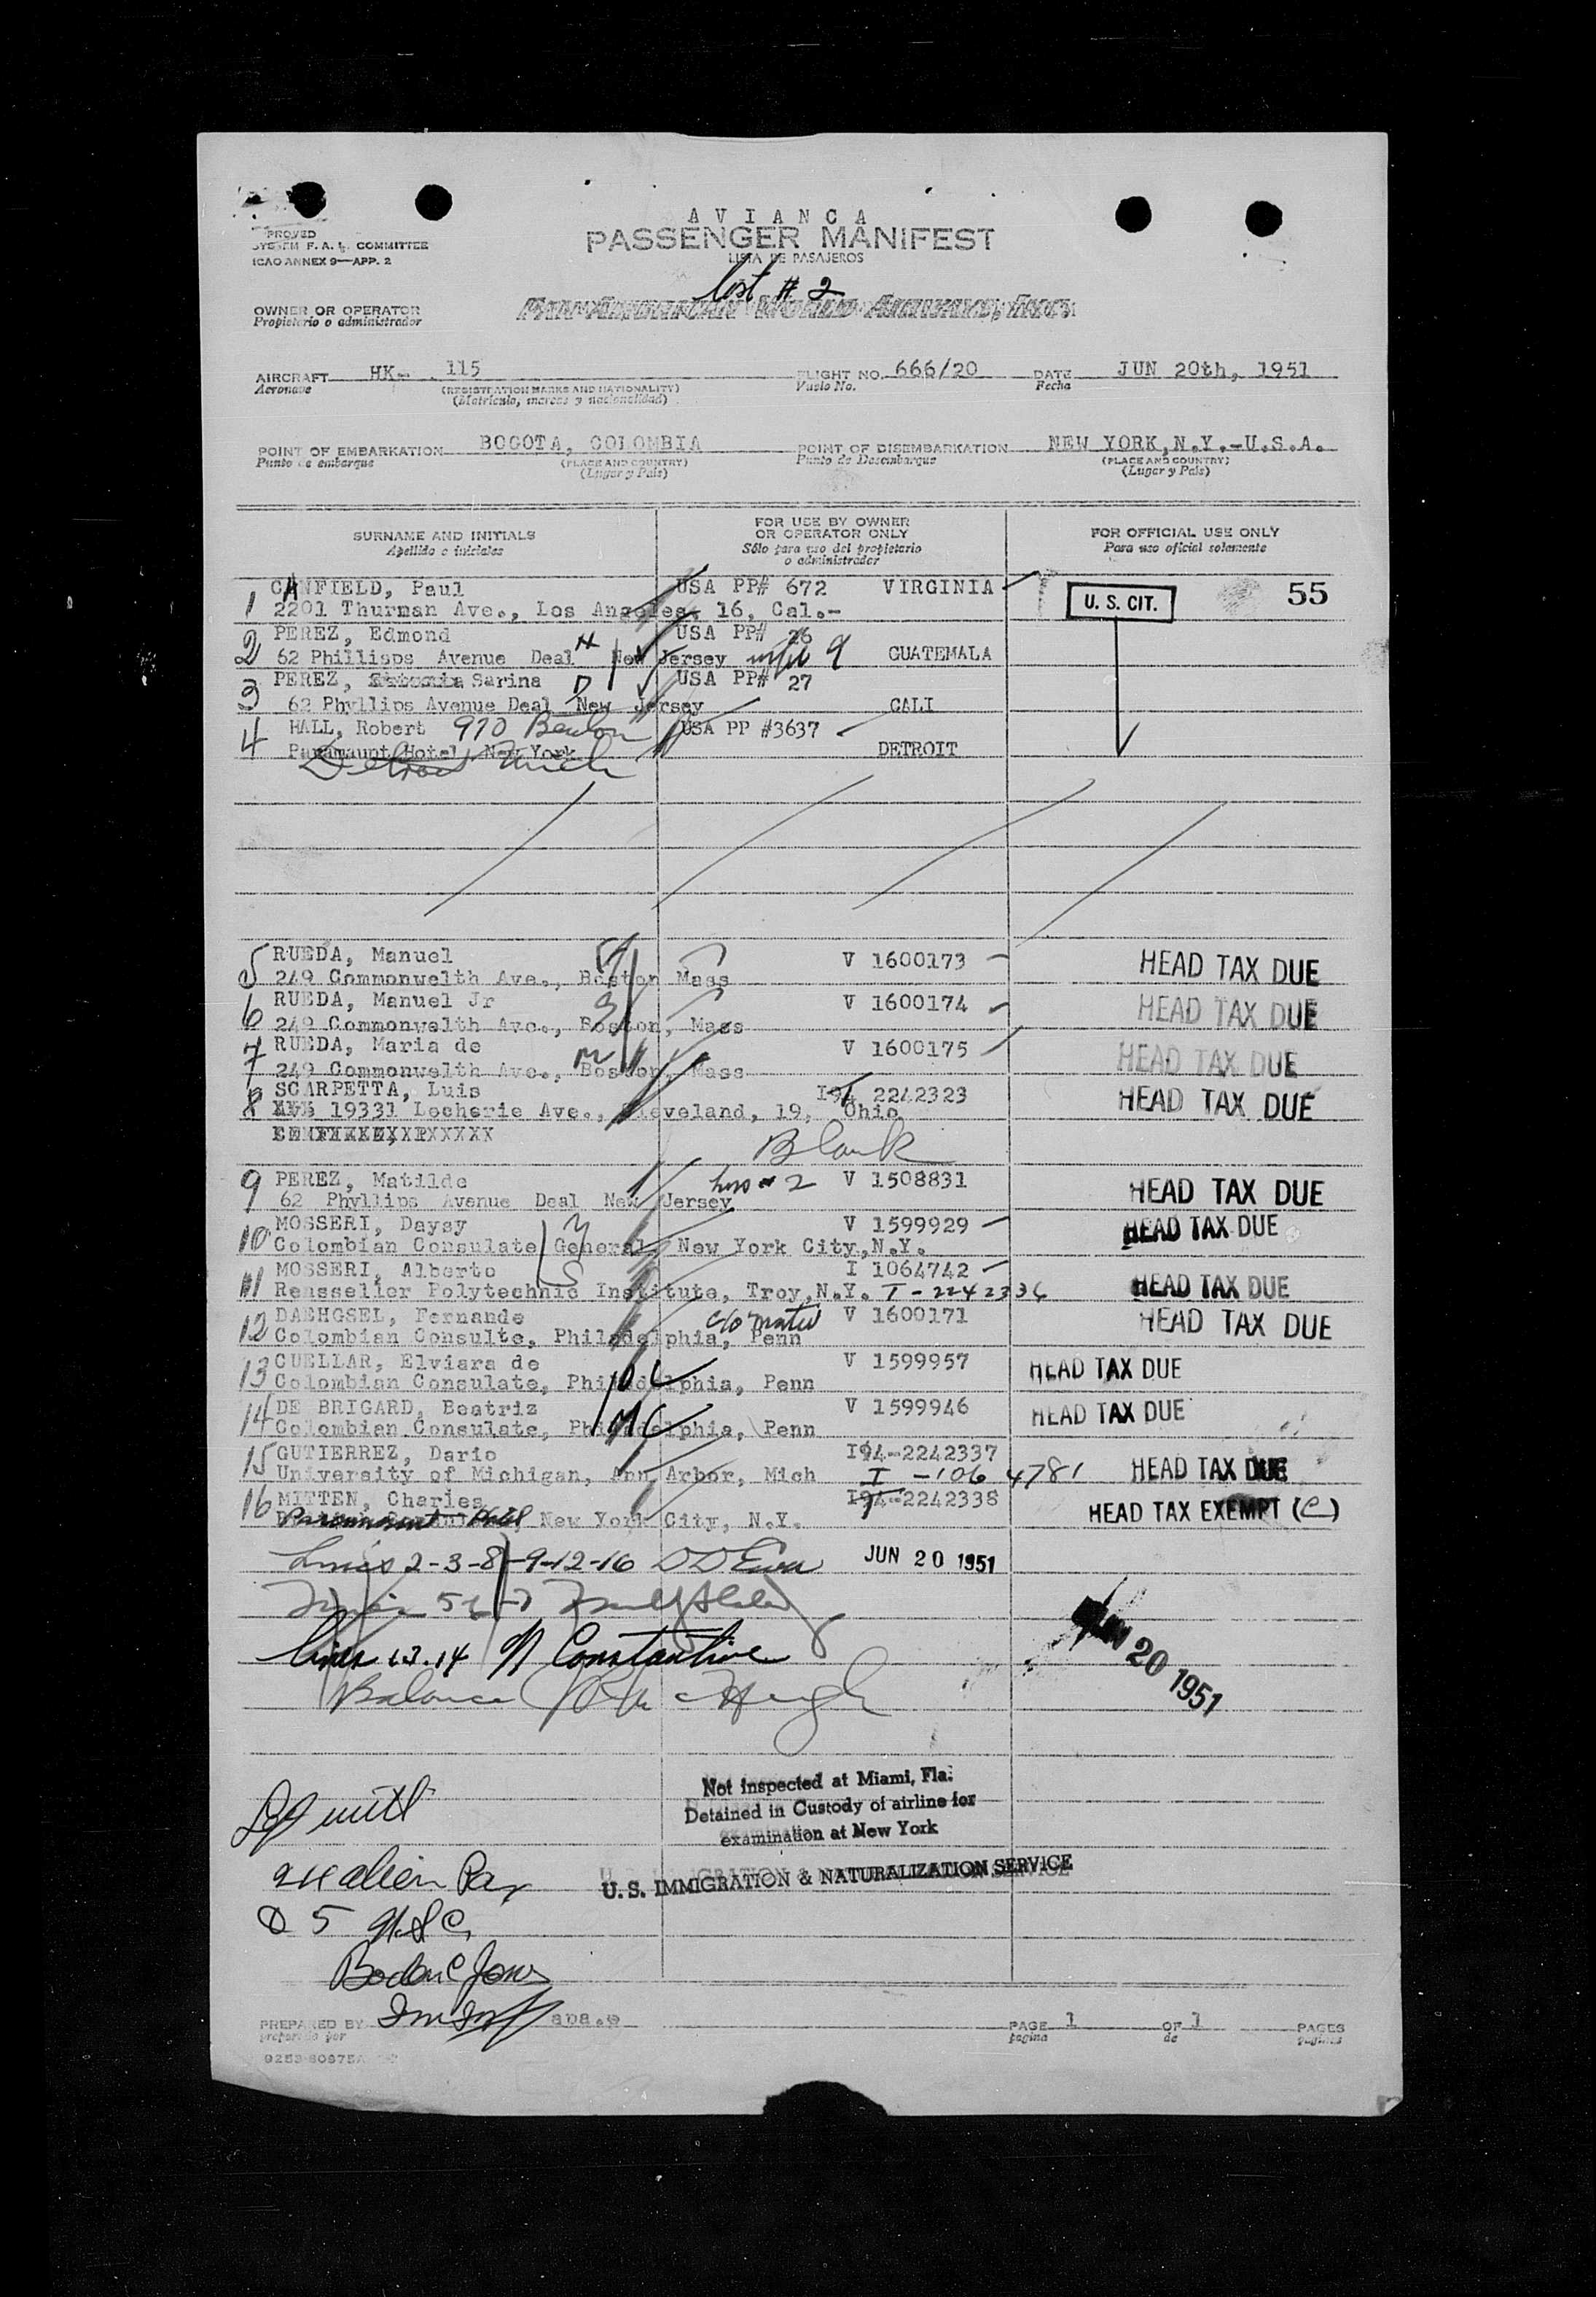 AVIANCA
PASSENGER MANIFEST
LISTA DE PASAJEROS
PROVED
SYSTEM F. A. L. COMMITTEE
ICAO ANNEX 9—APP. 2
# 2
OWNER OR OPERATOR
Propietario o administrador
PAN AMERICAN WORLD AIRWAYS, INC.
AIRCRAFT HK- 115 FLIGHT NO. 666/20 DATE JUN 20th, 1951
Aeronave (REGISTRATION MARKS AND NATIONALITY) Vuelo No. Fecha
(Matricula, marcas y nacionalidad)
POINT OF EMBARKATION BOGOTA, COLOMBIA POINT OF DISEMBARKATION NEW YORK,N.Y.-U.S.A.
Punto de embarque (PLACE AND COUNTRY) Punto de Desembarque (PLACE AND COUNTRY)
(Lugar y Pais) (Lugar y Pais)
SURNAME AND INITIALS FOR USE BY OWNER OR OPERATOR ONLY FOR OFFICIAL USE ONLY
Apellido e iniciales Sólo para uso del propietario o administrador Para uso oficial solamente
1 CANFIELD, Paul USA PP# 672 VIRGINIA U. S. CIT. 55
2201 Thurman Ave., Los Angeles, 16, Cal.-
2 PEREZ, Edmond H USA PP# 26
62 Phillips Avenue Deal New Jersey 9 GUATEMALA
3 PEREZ, Sarina D USA PP# 27
62 Phyllips Avenue Deal New Jersey CALI
4 HALL, Robert 970 USA PP #3637
Paramaunt Hotel New York DETROIT
Detroit Mich
5 RUEDA, Manuel V 1600173 HEAD TAX DUE
249 Commonwelth Ave., Boston Mass
6 RUEDA, Manuel Jr V 1600174 HEAD TAX DUE
249 Commonwelth Ave., Boston, Mass
7 RUEDA, Maria de V 1600175 HEAD TAX DUE
249 Commonwelth Ave., Boston, Mass
8 SCARPETTA, Luis I94 2242323 HEAD TAX DUE
19331 Locherie Ave., Cleveland, 19, Ohio
Blank
9 PEREZ, Matilde 2 V 1508831 HEAD TAX DUE
62 Phyllips Avenue Deal New Jersey
10 MOSSERI, Daysy V 1599929 HEAD TAX DUE
Colombian Consulate General, New York City,N.Y.
11 MOSSERI, Alberto I 1064742 HEAD TAX DUE
Rensseller Polytechnic Institute, Troy,N.Y. T-2242336
12 DAEHGSEL, Fernande V 1600171 HEAD TAX DUE
Colombian Consulte, Philadelphia, Penn
13 CUELLAR, Elviara de V 1599957 HEAD TAX DUE
Colombian Consulate, Philadelphia, Penn
14 DE BRIGARD, Beatriz V 1599946 HEAD TAX DUE
Colombian Consulate, Philadelphia, Penn
15 GUTIERREZ, Dario I94-2242337
University of Michigan, Ann Arbor, Mich I -106 4781 HEAD TAX DUE
16 MITTEN, Charles I94-2242338 HEAD TAX EXEMPT (C)
Paramount Hotel, New York City, N.Y.
Lines 2-3-8-9-12-16 JUN 20 1951
Lines 13.14 Constantine
Balance
JUN 20 1951
Not inspected at Miami, Fla.
Detained in Custody of airline for
examination at New York
U. S. IMMIGRATION & NATURALIZATION SERVICE
alien Pax
5
PREPARED BY PAGE 1 OF 1 PAGES
preparado por pagina de paginas